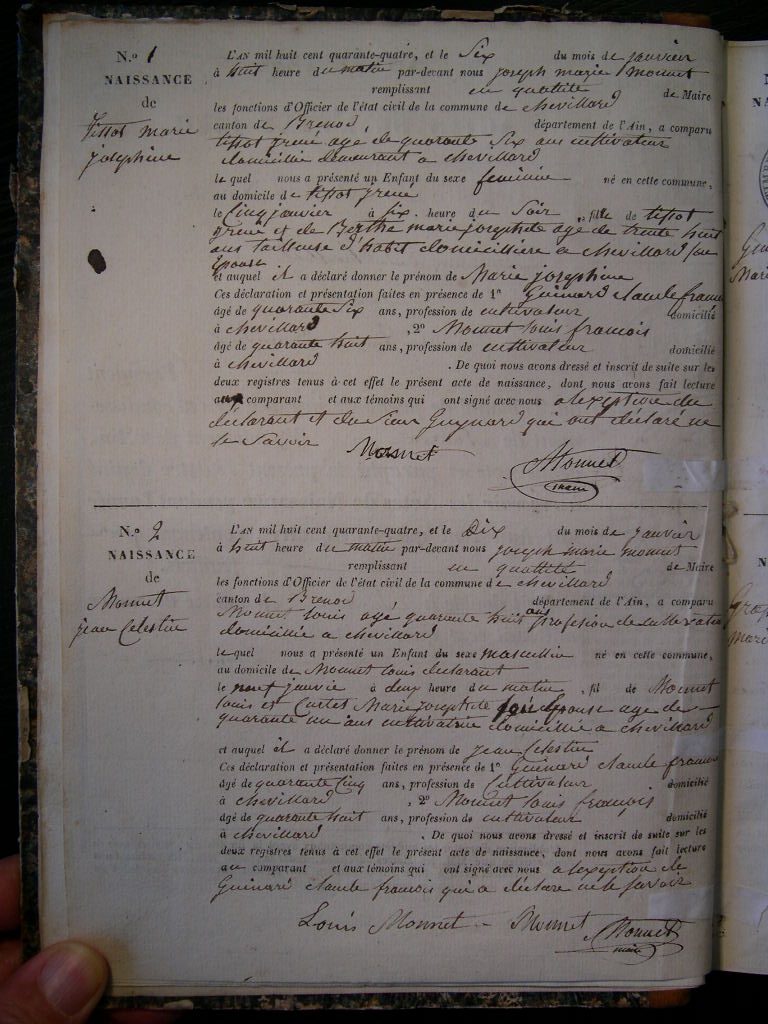 N.o 1
NAISSANCE
de
tissot marie
josephine
L'AN mil huit cent quarante-quatre, et le Six du mois de janvier
à huit heure du matin par-devant nous joseph marie Monnet
remplissant en quallité de Maire
les fonctions d'Officier de l'état civil de la commune de chevillard
canton de Brenod département de l'Ain, a comparu
tissot jrené agé de quarante Six ans cultivateur
domicilié demeurant a chevillard
le quel nous a présenté un Enfant du sexe feminin né en cette commune,
au domicile de tissot jrené
le Cinq janvier à Six heure du Soir, fille de tissot
jrené et de Berthe marie josephte age de trente huit
ans tailleuse d'habit domicilliere a chevillard son
Epouse
et auquel il a déclaré donner le prénom de Marie josephine
Ces déclaration et présentation faites en présence de 1º Guinard claude francois
âgé de quarante Six ans, profession de cultivateur domicilié
à chevillard, 2º Monnet louis francois
âgé de quarante huit ans, profession de cultivateur domicilié
à chevillard. De quoi nous avons dressé et inscrit de suite sur les
deux registres tenus à cet effet le présent acte de naissance, dont nous avons fait lecture
au comparant et aux témoins qui ont signé avec nous a lexeption du
déclarant et du Sieur Guynard qui ont déclaré ne
le Savoir
Monnet Monnet
maire
N.o 2
NAISSANCE
de
Monnet
jean Celestin
L'AN mil huit cent quarante-quatre, et le Dix du mois de janvier
à huit heure du matin par-devant nous joseph marie monnet
remplissant en quallité de Maire
les fonctions d'Officier de l'état civil de la commune de chevillard
canton de Brenod département de l'Ain, a comparu
Monnet louis agé quarante huit ans profession de cultivateur
domicillié a chevillard
le quel nous a présenté un Enfant du sexe masculin né en cette commune,
au domicile de Monnet louis declarant
le neuf janvie à deux heure du matin, fil de Monnet
louis et Curtet Marie josephte son Epouse age de
quarante un ans cultivatrice domicillié a chevillard
et auquel il a déclaré donner le prénom de jean Celestin
Ces déclaration et présentation faites en présence de 1º Guinard claude francois
âgé de quarante Cinq ans, profession de Cultivateur domicilié
à chevillard, 2º Monnet louis françois
âgé de quarante huit ans, profession de cultivateur domicilié
à chevillard. De quoi nous avons dressé et inscrit de suite sur les
deux registres tenus à cet effet le présent acte de naissance, dont nous avons fait lecture
au comparant et aux témoins qui ont signé avec nous a lexeption de
Guinard claude francois qui a déclare ne le savoir
Louis Monnet Monnet Monnet
maire